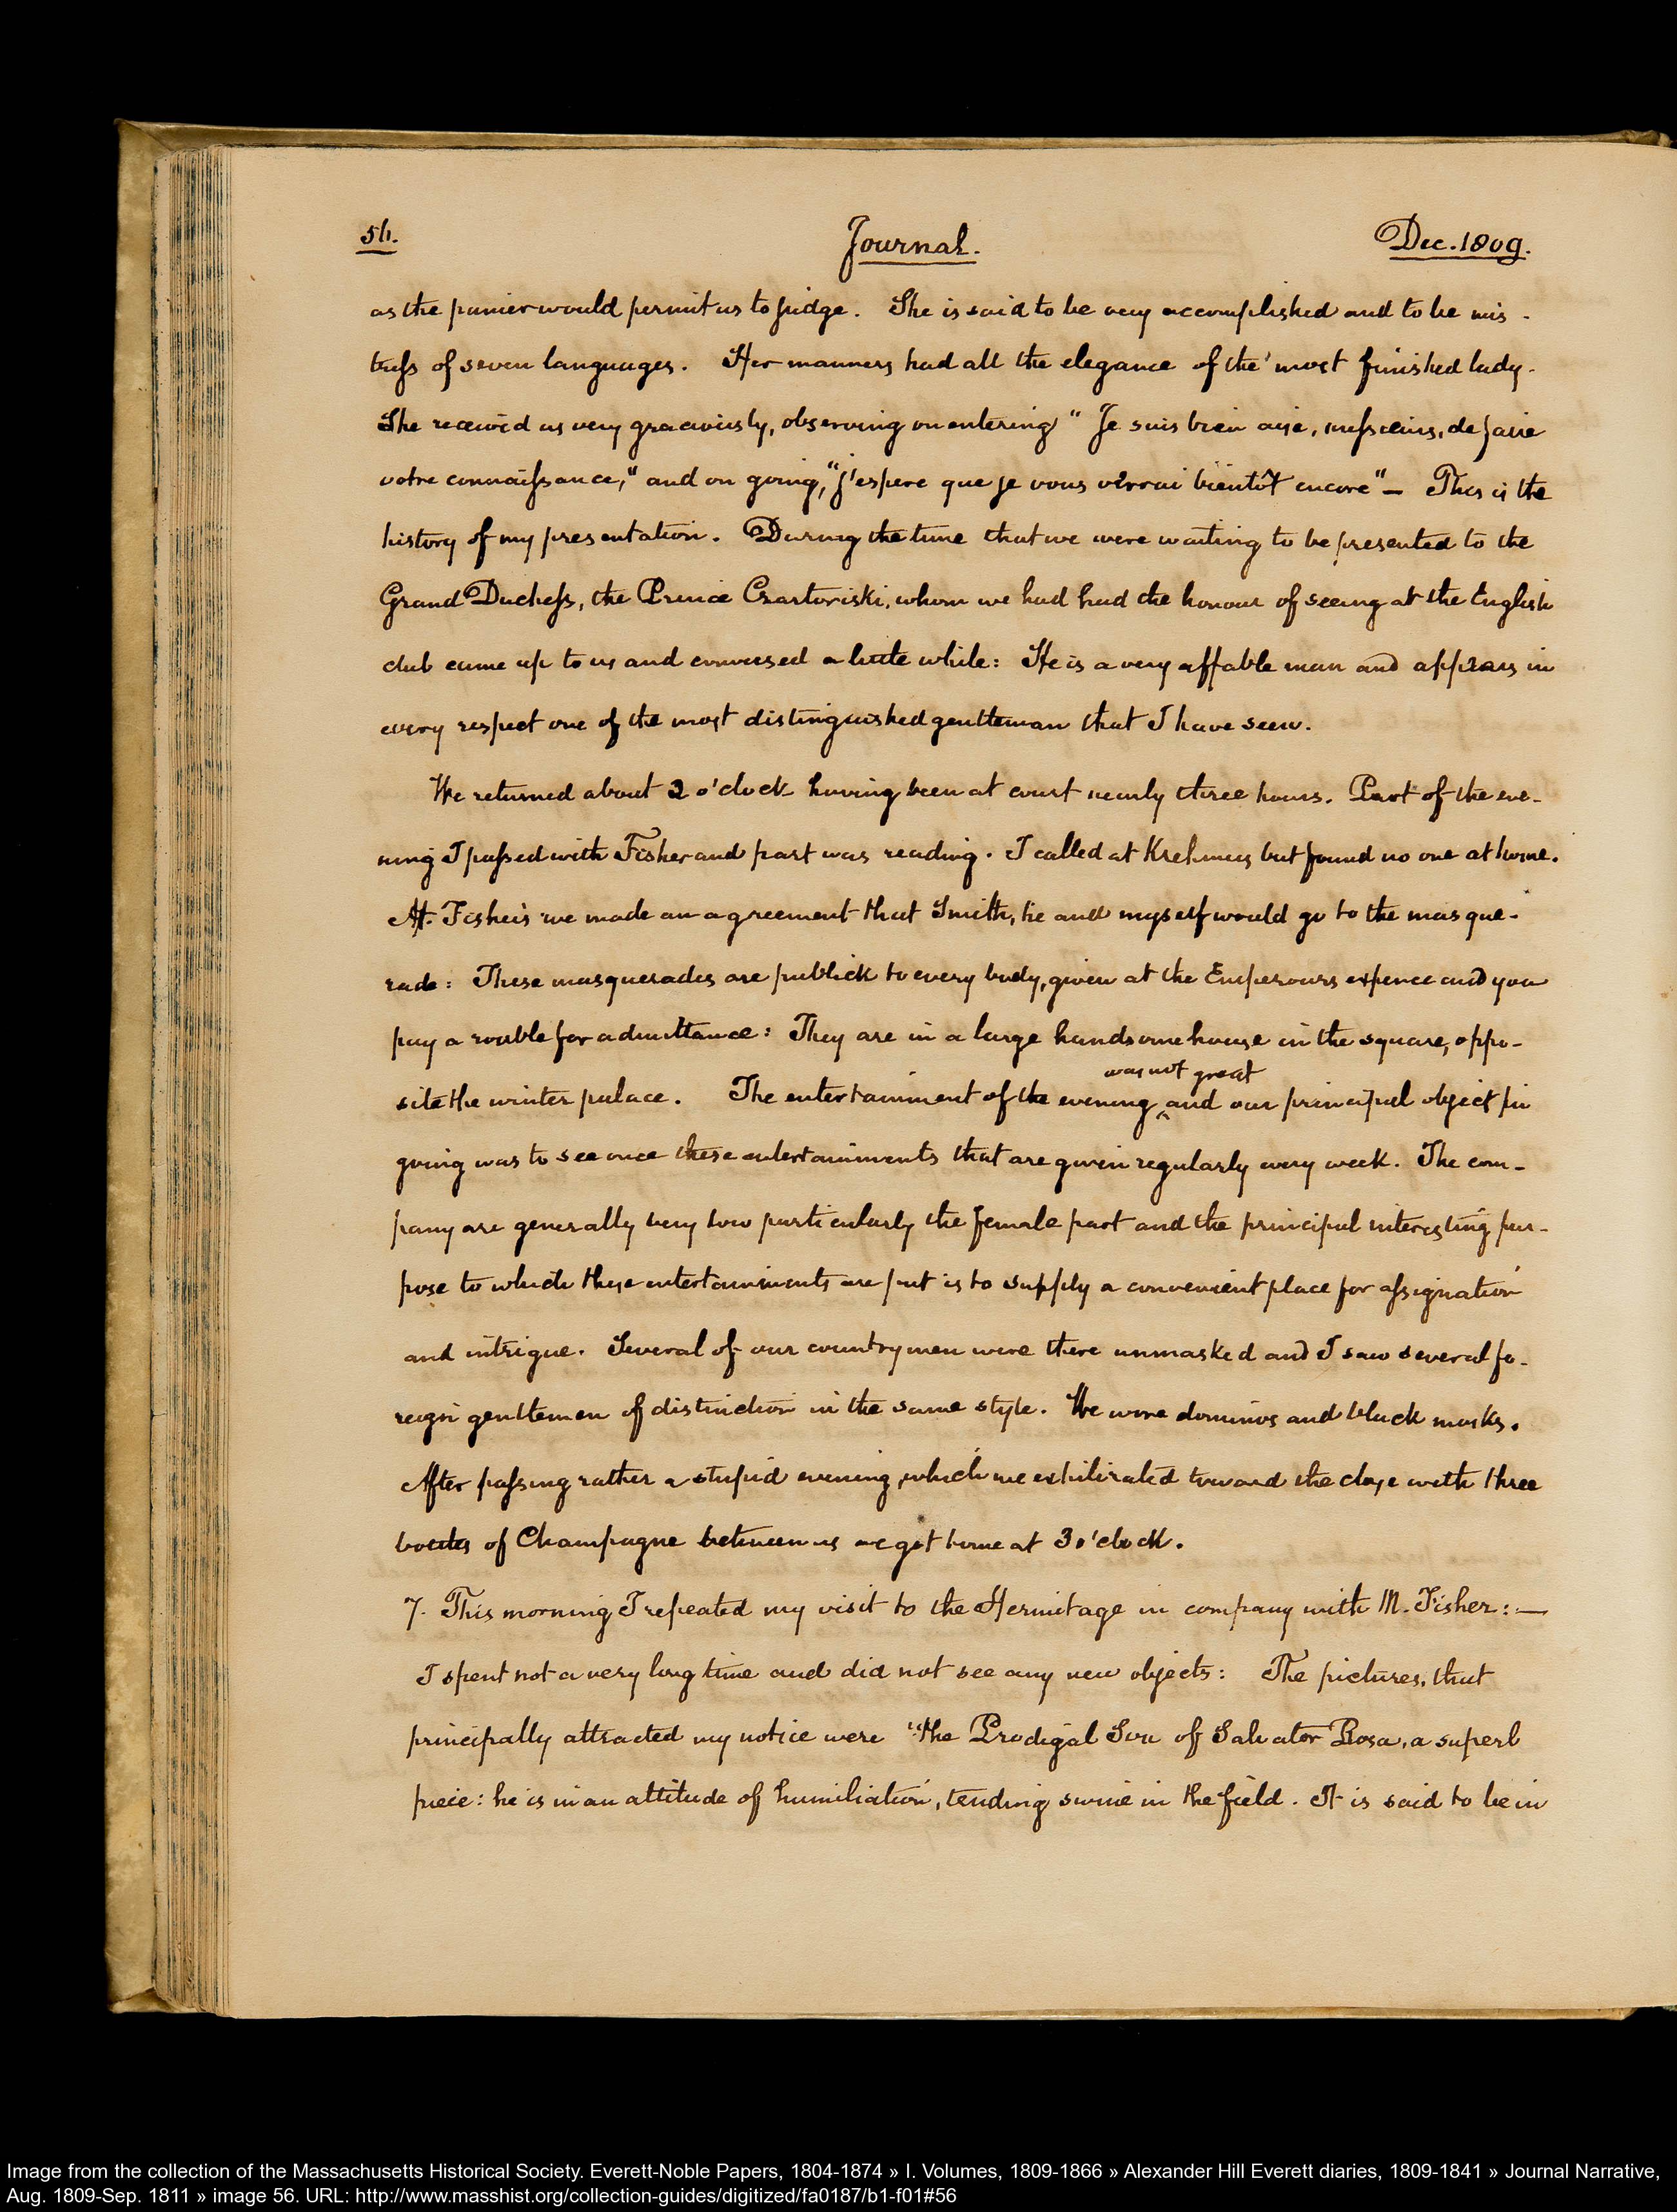 56.
Journal.
Dec. 1809.
as the panier would permit us to judge. She is said to be very accomplished and to be mis-
tress of seven languages. Her manners had all the elegance of the most finished lady.
She received us very graciously, observing on entering "Je suis bien aise, messieurs, de faire
votre connaissance," and on going, "j'espere que je vous verrai bientôt encore" — This is the
history of my presentation. During the time that we were waiting to be presented to the
Grand Duchess, the Prince Czartoriski, whom we had had the honour of seeing at the English
club came up to us and conversed a little while: He is a very affable man and appears in
every respect one of the most distinguished gentleman that I have seen.
We returned about 2 o'clock having been at court nearly three hours. Part of the eve-
ning I passed with Fisher and part was reading. I called at Krehmers but found no one at home.
At Fisher's we made an agreement that Smith, he and myself would go to the masque-
rade: These masquerades are publick to every body, given at the Emperours expence and you
pay a rouble for admittance: They are in a large handsome house in the square, oppo-
was not great
site the winter palace. The entertainment of the evening ^ and our principal object in
going was to see once these entertainments that are given regularly every week. The com-
pany are generally very low particularly the female part and the principal interesting pur-
pose to which these entertainments are put is to supply a convenient place for assignation
and intrigue. Several of our countrymen were there unmasked and I saw several fo-
reign gentlemen of distinction in the same style. We wore dominos and black masks.
After passing rather a stupid evening, which we exhilirated toward the close with three
bottles of Champagne between us we got home at 3 o'clock.
7. This morning I repeated my visit to the Hermitage in company with M. Fisher: —
I spent not a very long time and did not see any new objects: The pictures, that
principally attracted my notice were "the Prodigal Son of Salvator Rosa, a superb
piece: he is in an attitude of humiliation, tending swine in the field. It is said to be in
Image from the collection of the Massachusetts Historical Society. Everett-Noble Papers, 1804-1874 » I. Volumes, 1809-1866 » Alexander Hill Everett diaries, 1809-1841 » Journal Narrative,
Aug. 1809-Sep. 1811 » image 56. URL: http://www.masshist.org/collection-guides/digitized/fa0187/b1-f01#56